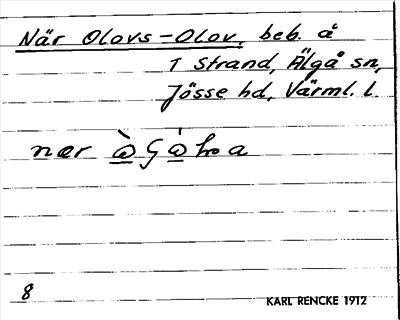 När Olovs-Olov, beb. å
T Strand, Älgå sn,
Jösse hd, Värml. l.
nær
8
KARL RENCKE 1912